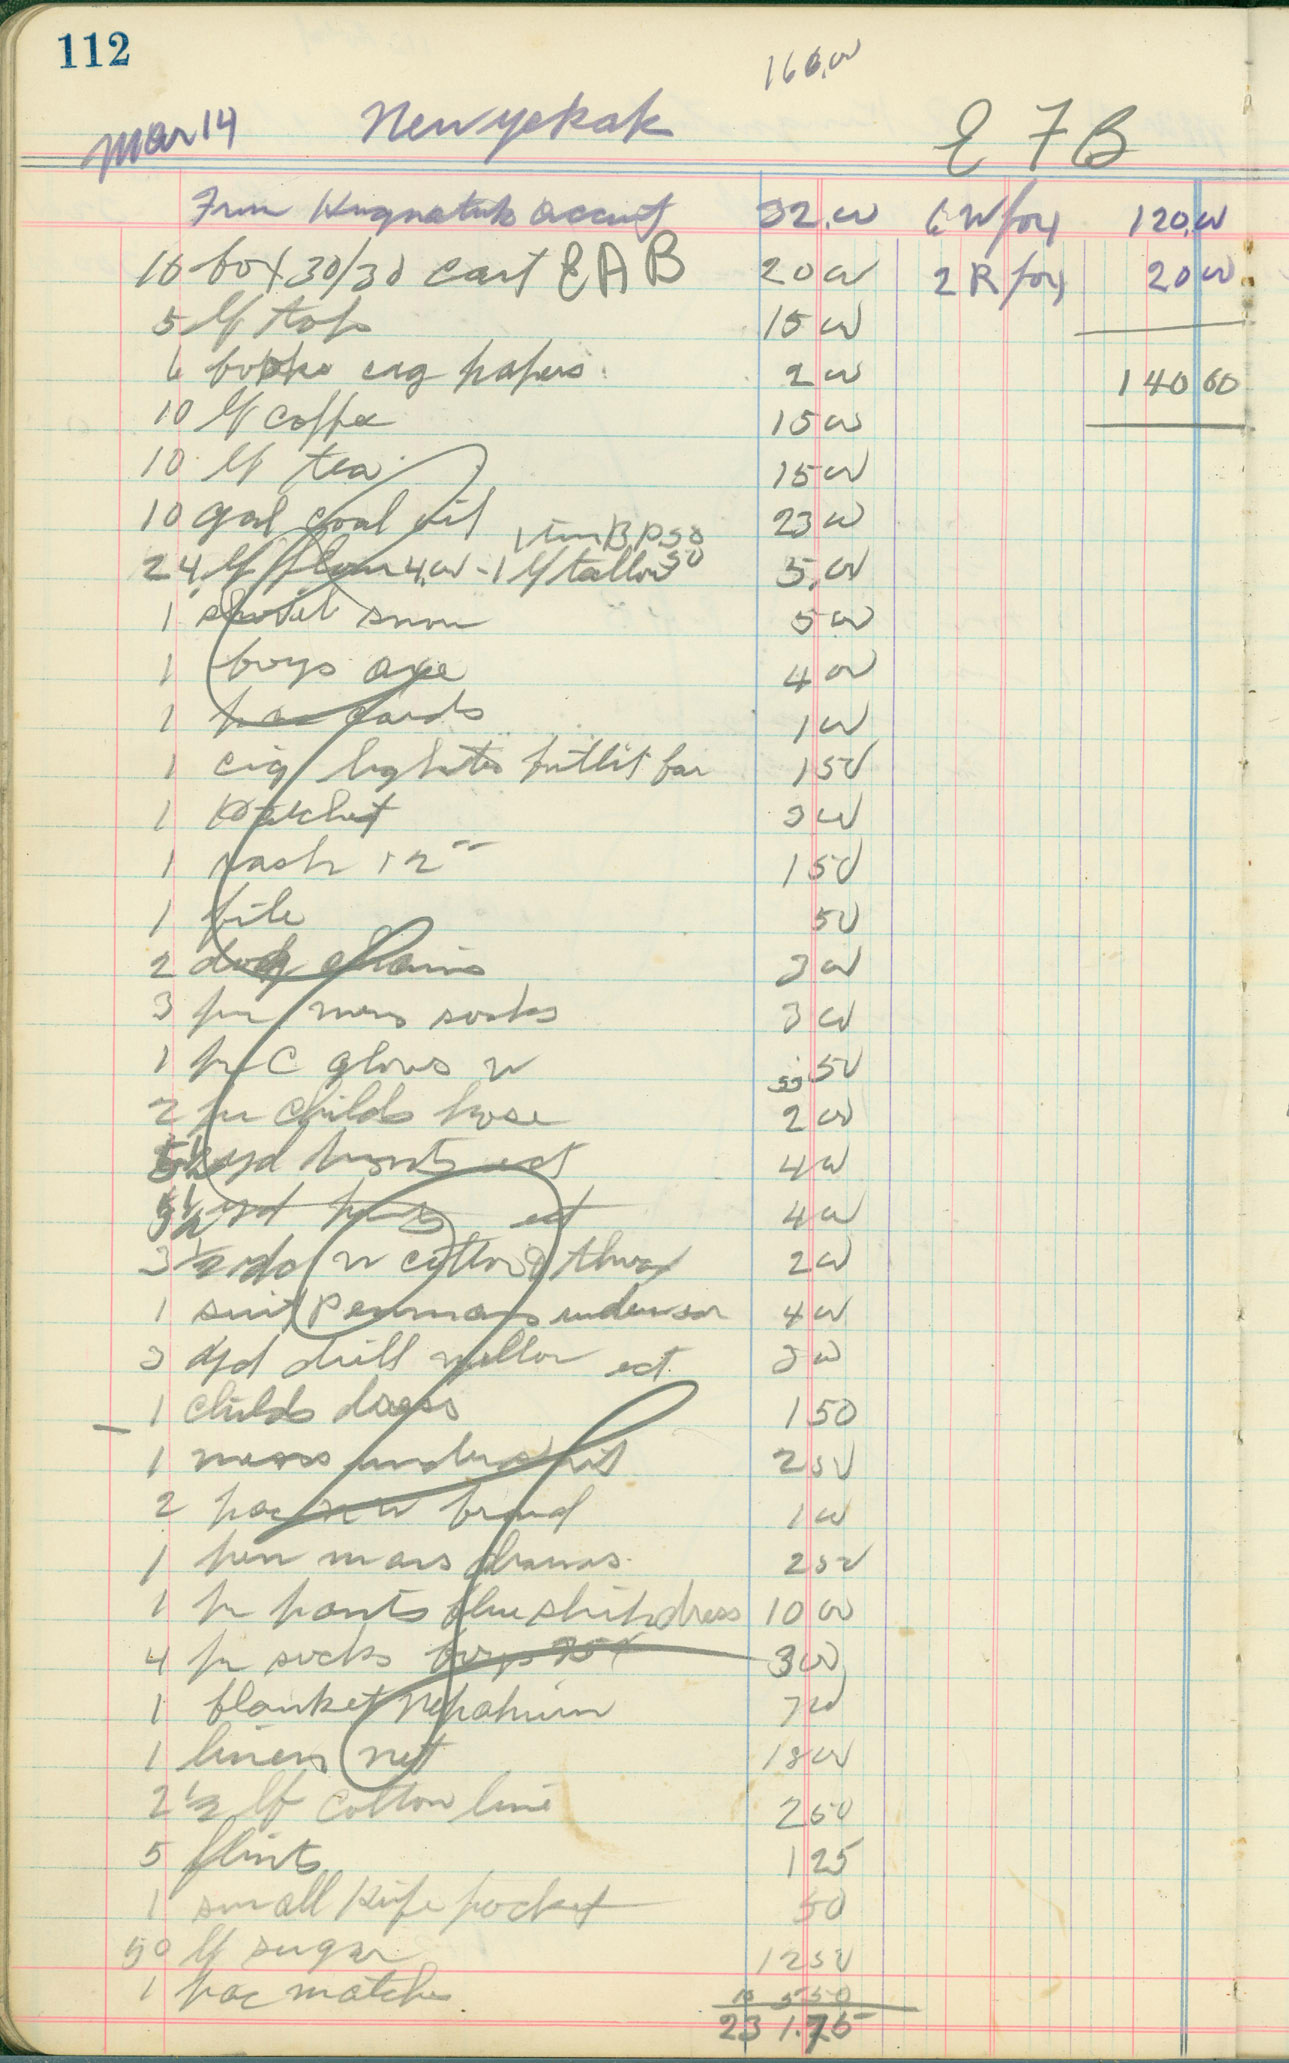 112
160.00
Mar 14 Newyekak E F B
From account 32.00 6 W fox 120.00
10 box 30/30 cart E A B 20 00 2 R fox 20 00
5 lb tob 15 00
6 books cig papers 2 00 140 00
10 lb coffee 15 00
10 lb tea 15 00
10 gal coal oil 23 00
1 tin B.P. 50
24 lb flour 4.00 - 1 lb tallow 50 5.00
1 shovel snow 5 00
1 boys axe 4 00
1 pac cards 1 00
1 cig lighter 1 50
1 hatchet 3 00
1 rasp 12" 1 50
1 file 50
2 dog chains 3 00
3 pr mens socks 3 00
1 pr C gloves w 50
2 pr childs hose 2 00
5 1/2 yd prints ect 4 00
5 1/2 yd ect 4 00
3 1/2 do w cotton & thread 2 00
1 suit Penmans underwear 4 00
3 yd drill yellow ect 3 00
1 childs dress 1 50
1 mens undershirt 2 50
2 pac braid 1 00
1 penmans drawers 2 50
1 pr pants blue shirt dress 10 00
4 pr socks boys 75¢ 3 00
1 blanket 7 00
1 linen net 18 00
2 1/2 lb cotton line 2 50
5 flints 1 25
1 small knife pocket 50
50 lb sugar 12 50
1 pac matches 50
231.75